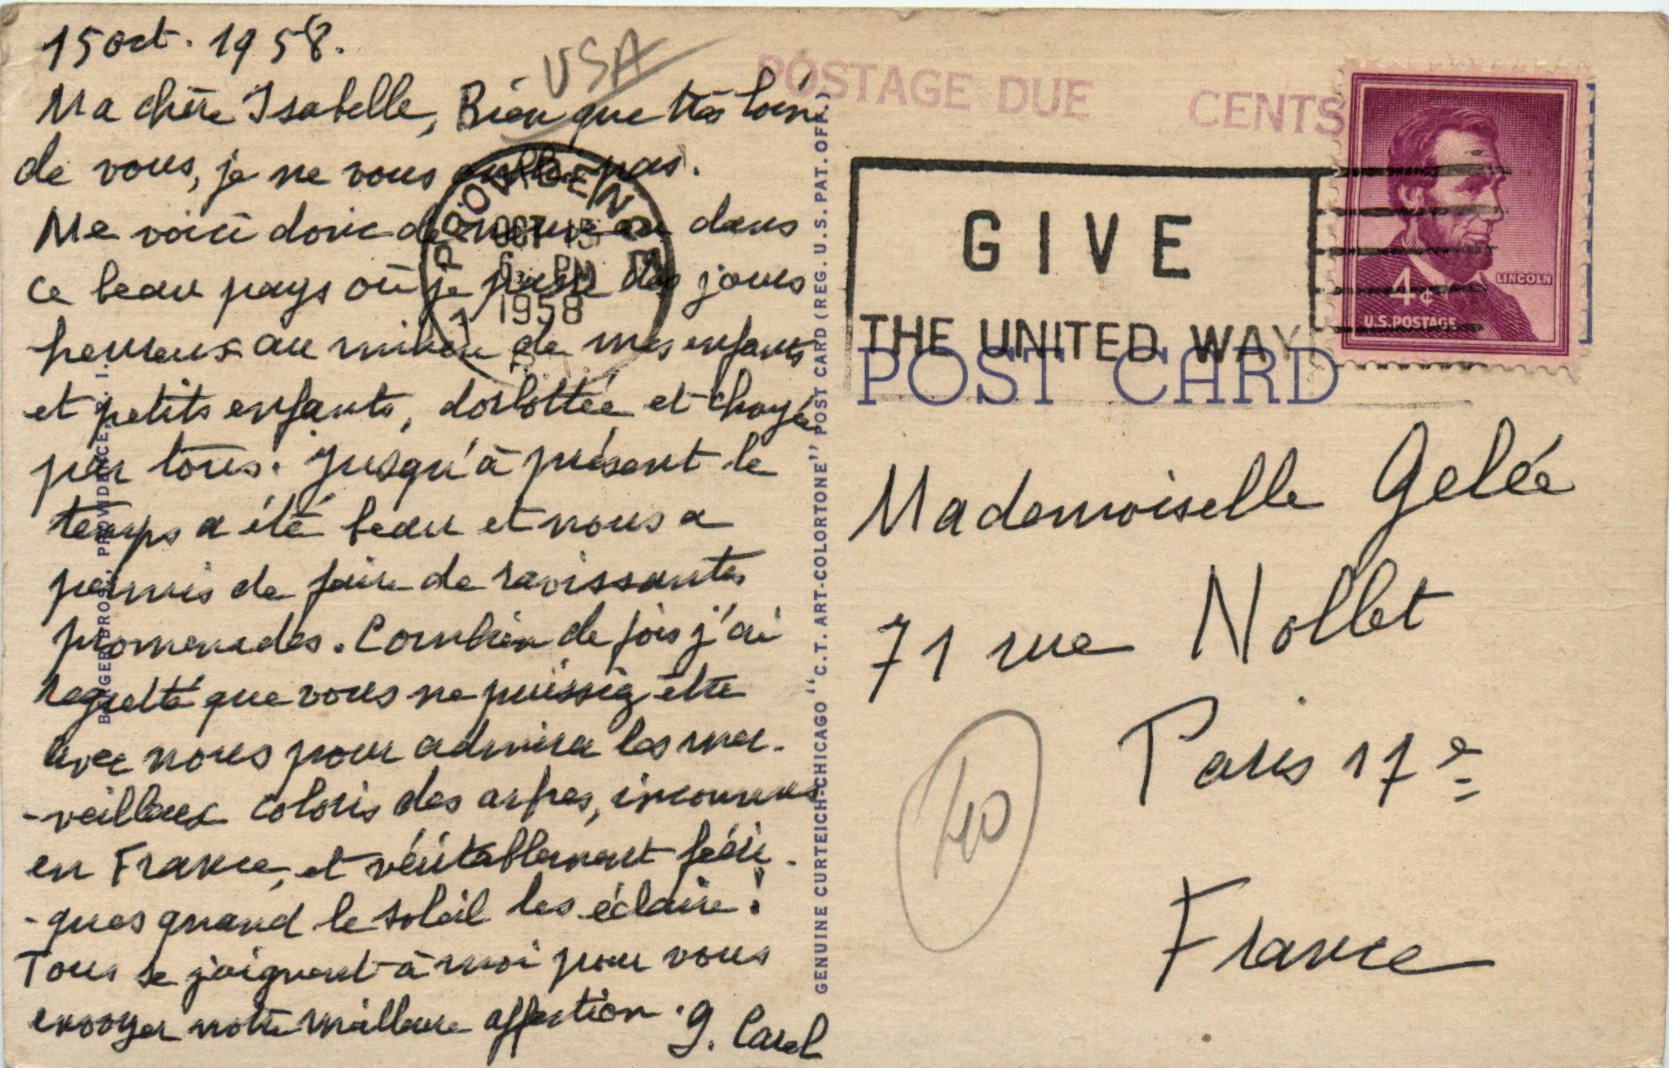 15 oct. 1958.
Ma chère Isabelle, Bien que très loin
de vous, je ne vous oublie pas.
Me voici donc de nouveau dans
ce beau pays où je passe des jours
heureux au milieu de mes enfants
et petits enfants, dorlottée et choyée
par tous. Jusqu'à présent le
temps a été beau et nous a
permis de faire de ravissantes
promenades. Combien de fois j'ai
regretté que vous ne puissiez être
avec nous pour admirer les mer-
-veilleux coloris des arbres, inconnus
en France, et véritablement féeri-
-ques quand le soleil les éclaire!
Tous se joignent à moi pour vous
envoyer notre meilleure affection. G. Carel
USA
PROVIDENCE
OCT 15
6 PM
1958
R.I.
BERGER BROS., PROVIDENCE, R. I.
GENUINE CURTEICH-CHICAGO "C.T. ART-COLORTONE" POST CARD (REG. U.S. PAT. OFF.)
POSTAGE DUE CENTS
GIVE
THE UNITED WAY
POST CARD
LINCOLN
4¢
U.S. POSTAGE
Mademoiselle Gelée
71 rue Nollet
Paris 17e
France
40